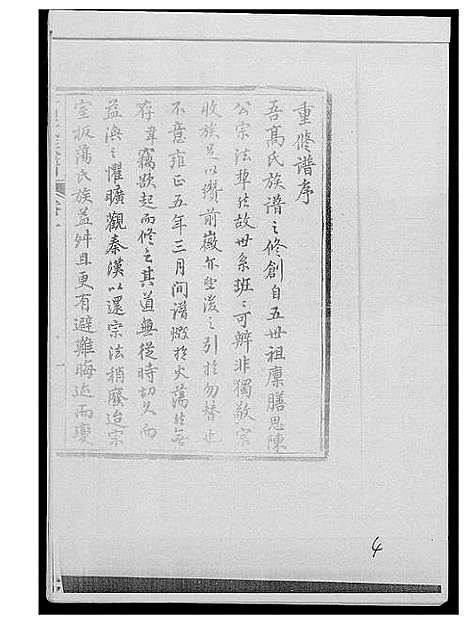 重修譜序
吾高氏族譜之修創自五世祖廩膳思陳
公宗法犂然故世系班〻可辨非獨敬宗
收族足以纘前徽亦垂後之引於勿替也
不意雍正五年三月間譜燬於火蕩然無
存專竊欲起而修之其道無從時切久而
益湮之懼曠觀秦漢以還宗法稍廢迨宗
室板蕩氏族益舛且更有避難晦迹而變
4